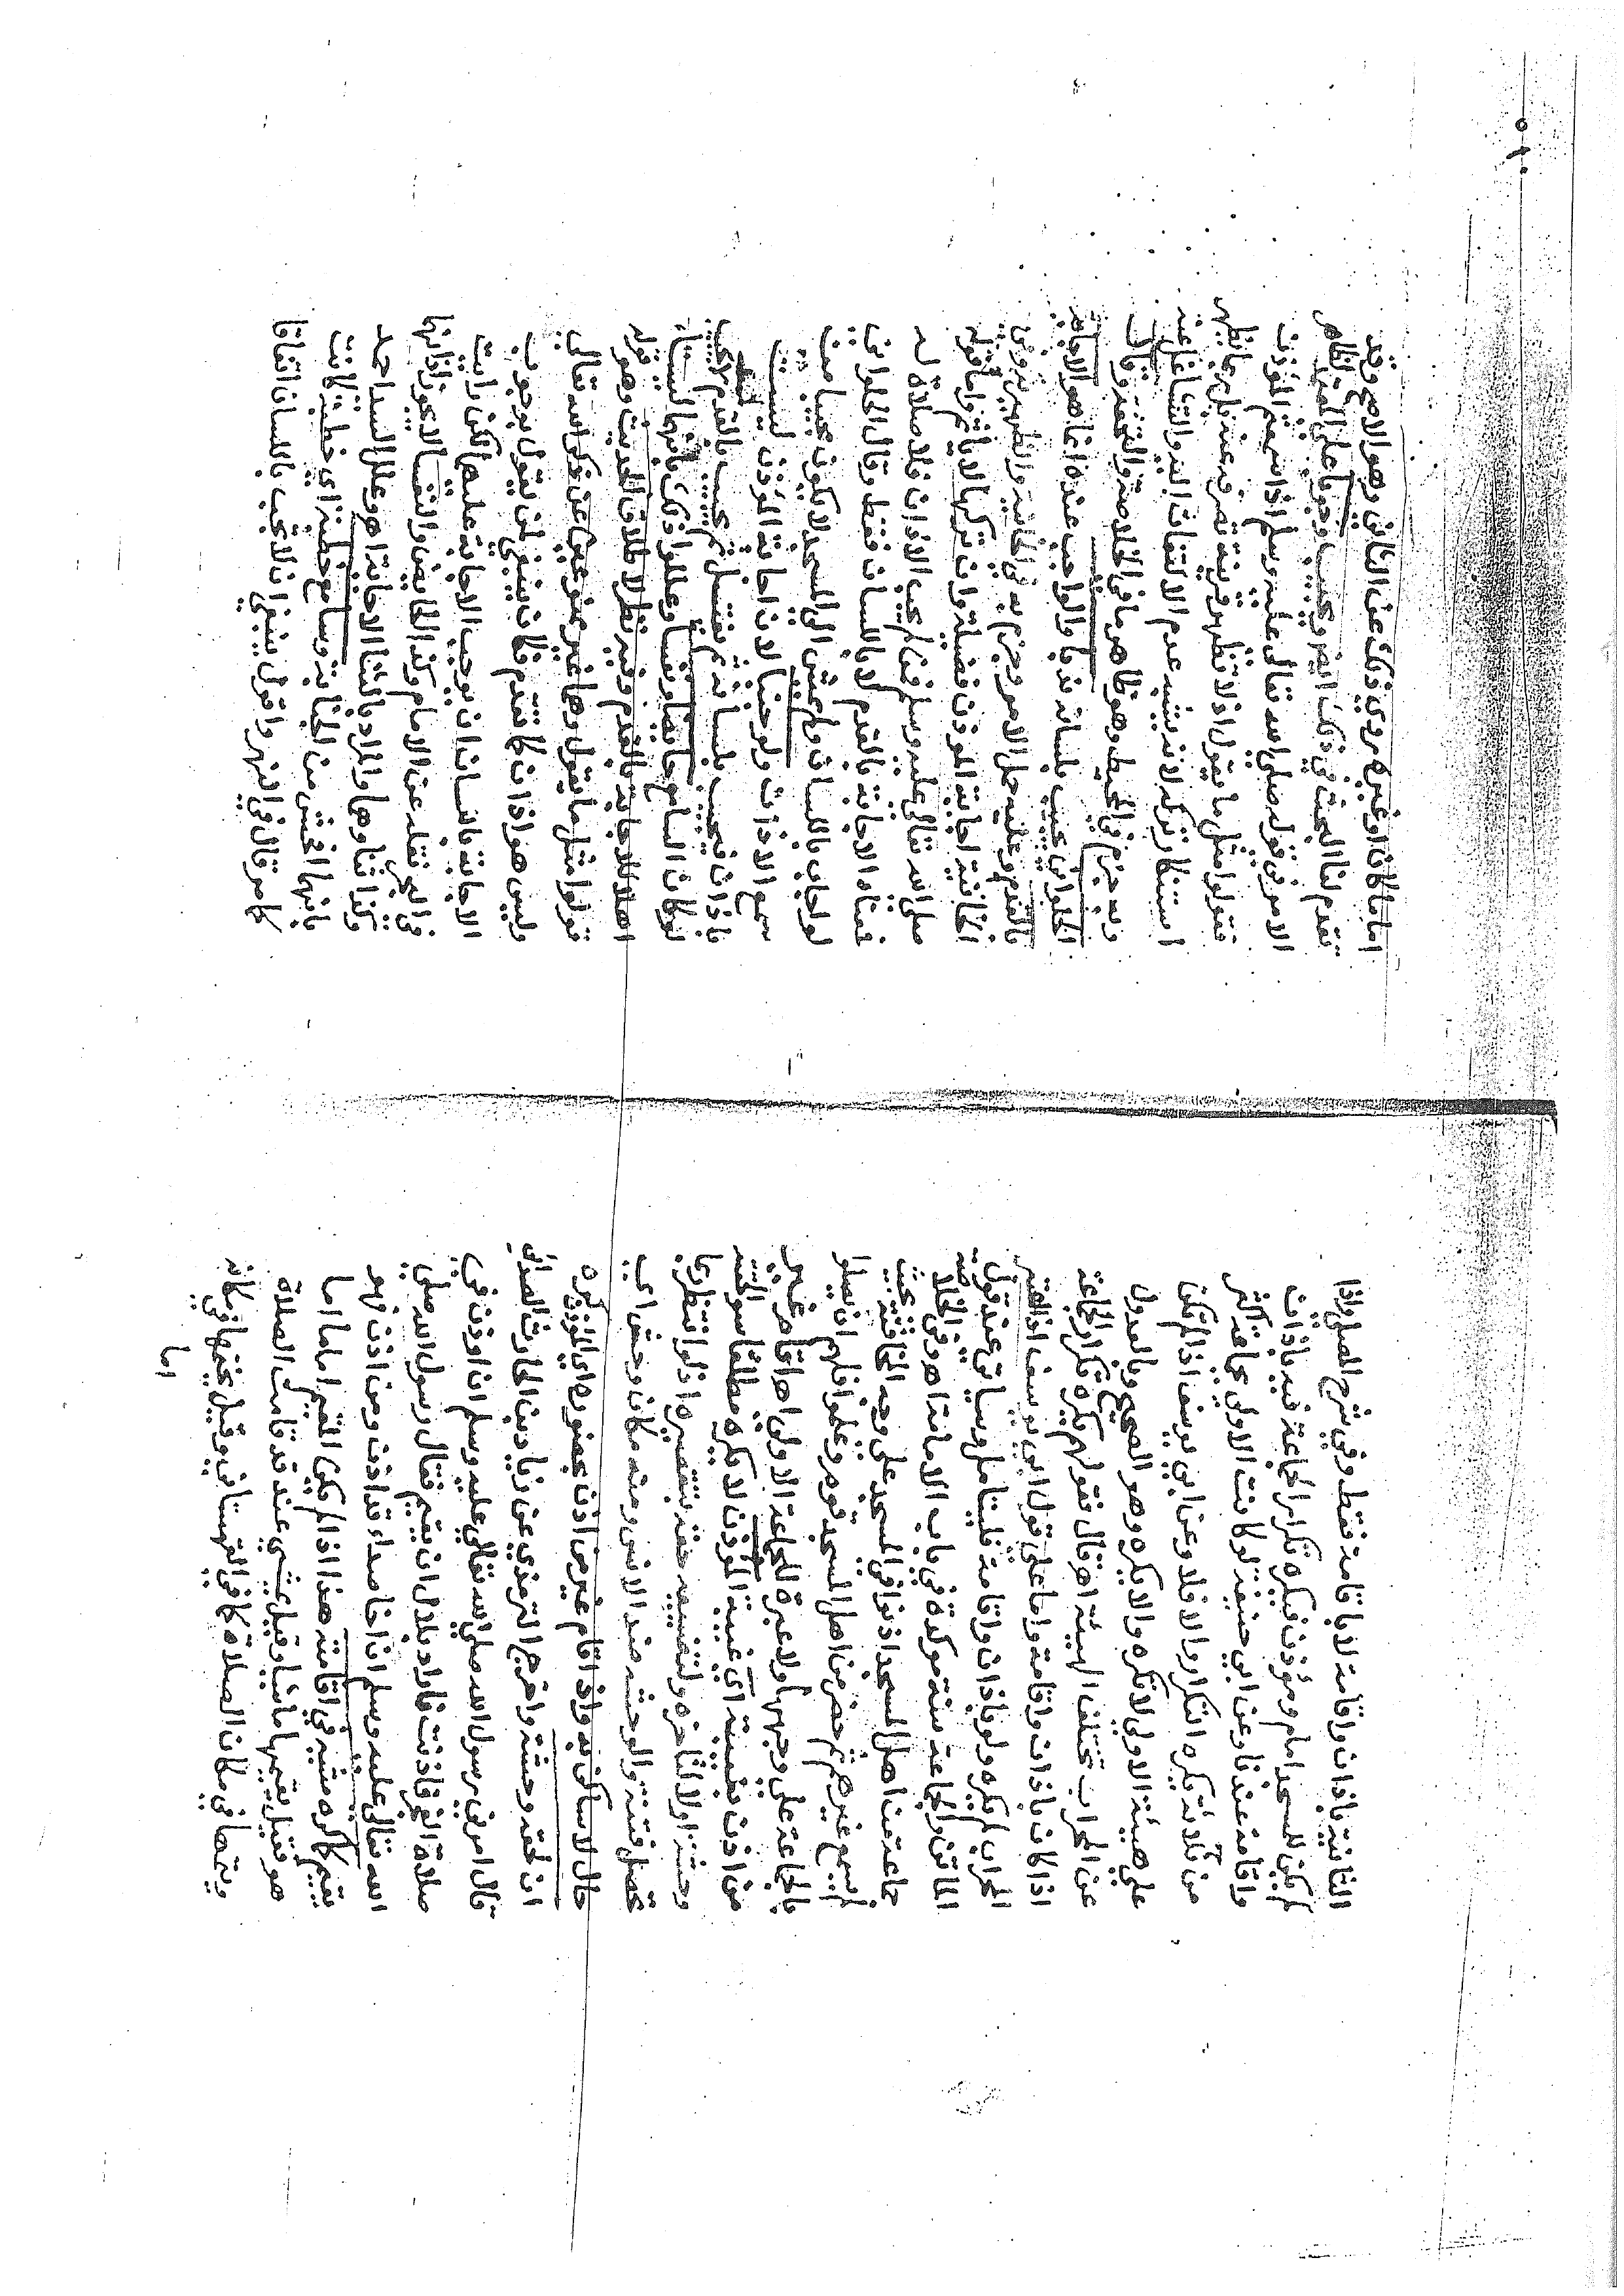 الثانية باذان واقامة لا باقامة فقط وفي شرح المصلي واذا
لم يكن للمسجد امام ومؤذن فيكره تكرار الجماعة فيه باذان
واقامة عندنا وعن ابي حنيفة لو كانت الاولى بجماعة اكثر
من ثلاثة يكره التكرار والا فلا وعن ابي يوسف اذا لم تكن
على هيئة الاولى لا تكره والا يكره وهو الصحيح وبالعدول
عن المحراب تختلف الهيئة اهـ قال فقولهم يكره تكرار الجماعة
اذا كان باذان واقامة واما على قول ابي يوسف اذا
المحراب لم يكره ولو باذان واقامة فليتامل وسياتي عند قول
الماتن والجماعة سنة موكدة في باب الامامة اهـ وفي الخلاصة
جماعة من اهل المسجد اذنوا في المسجد على وجه المخافتة بحيث
لم يسمع غيرهم ثم حضر من اهل المسجد قوم وعلموا فلهم ان يصلوا
بالجماعة على وجهها ولا عبرة للجماعة الاولى اهـ اقام غير
من اذن بغيبته اي غيبة المؤذن لا يكره مطلقا سوا لحقته
وحشة اولا لتاخره ولتغييبه حقه بتقصيره اذ لو انتظر ربما
تحصل فتنة والوحشة ضد الانس ومنه مكان وحش اي
خال لا ساكن به وان اقام غير من اذن بحضوره اي المؤذن كره
ان لحقه وحشة واخرج الترمذي عن زياد بن الحارث الصدائي
قال امرني رسول الله صلى الله تعالى عليه وسلم ان اوذن في
صلاة الفجر فاذنت فاراد بلال ان يقيم فقال رسول الله صلى
الله تعالى عليه وسلم ان اخا صداء قد اذن ومن اذن فهو
يقيم كما كره مشيه في اقامته هذا اذا لم يكن المقيم اماما اما
هو فقيل يقيمها ماشيا وقيل يمشي عند قد قامت الصلاة
ويتمها في مكان الصلاة كما في القهستاني وقيل يختمها في مكانه
اما
اماما كان او غيره روي ذلك عن الثاني وهو الاصح وقد
تقدم لنا البحث في ذلك ويجيب وجوبا على المعتمد الظاهر
الامر في قوله صلى الله تعالى عليه وسلم اذا سمعتم المؤذن
فقولوا مثل ما يقول اذ لا تظهر قرينة تصرفه عنه بل ربما يظهر
استنكار تركه لانه يشبه عدم الالتفات اليه والتشاغل عنه
وبه جزم في المحيط وهو ظاهر ما في الخلاصة والتحفة وقال
الحلواني يجيب بلسانه ندبا والواجب عنده انما هو الاجابة
بالقدم وعليه حمل الامر وجزم به في الخانية والظهيرية وفي
الخانية اجابة المؤذن فضيلة وان تركها لا ياثم واما قوله
صلى الله تعالى عليه وسلم من لم يجب الاذان فلا صلاة له
فمعناه الاجابة بالقدم لا باللسان فقط وقال الحلواني
لو اجاب باللسان ولم يمش الى المسجد لا يكون مجيبا من
سمع الاذان ولو جنبا لان اجابة المؤذن ليست
باذان فيجيب بلسانه ثم يغتسل ثم يجيب بالقدم
لو كان السامع حائضا ونفسا وعللوا ذلك بانهما ليستا
اهلا للاجابة بالقدم وفيه نظر لاطلاق الحديث وهو قوله
قولوا مثل ما يقول وهما غير ممنوعين عن ذكر الله تعالى
وليس هو اذان كما تقدم فكان ينبغي لمن يقول بوجوب
الاجابة باللسان ان يوجب الاجابة عليهما لكن رايت
في البحر نقله عن الامام وكذا الحايض والنفسا لا يجوز اذانهما
وكذا ثناوهما والمراد بالثنا الاجابة اهـ وعلل السداحد
بانهما افحش من الجنابة وسامع خطبة اي خطبة كانت
كما مر قال في النهر واقول ينبغي ان لا يجب باللسان اتفاقا